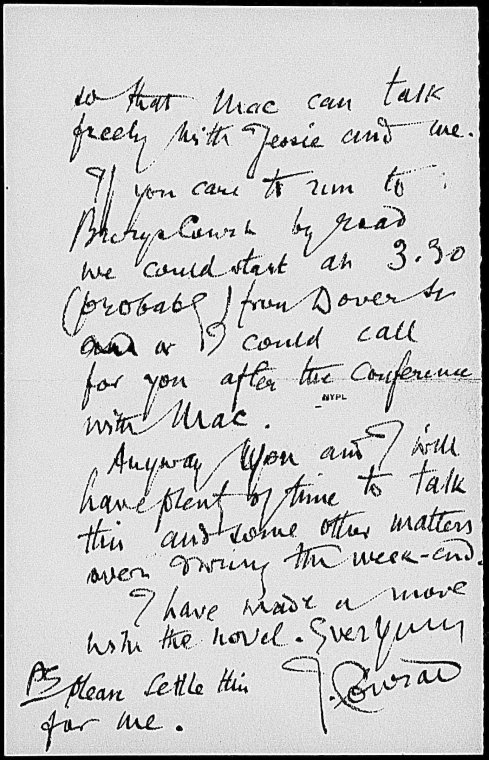 so that Mac can talk
freely with Jessie and me.
If you care to run to
by road
we could start at 3.30
(probably) from Dover St
or I could call
for you after the Conference
NYPL
with Mac.
Anyway You and I will
have plenty of time to talk
this and some other matters
over during the week-end.
I have made a move
with the novel. Ever Yours
J. Conrad
PS please settle this
for me.